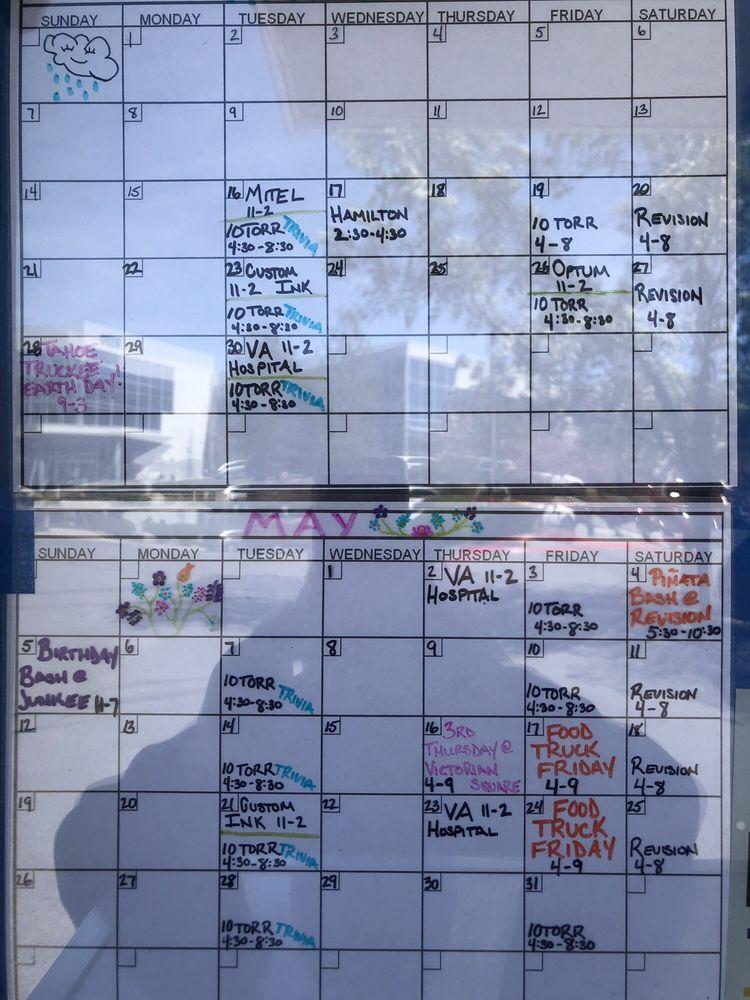 SUNDAY MONDAY TUESDAY WEDNESDAY THURSDAY FRIDAY SATURDAY
1 2 3 4 5 6
7 8 9 10 11 12 13
14 15 16 MITEL 17 18 19 20
11-2 HAMILTON 10 TORR REVISION
10 TORR TRIVIA 2:30-4:30 4-8 4-8
4:30-8:30
21 22 23 CUSTOM 24 25 26 OPTUM 27
11-2 INK 11-2 REVISION
10 TORR TRIVIA 10 TORR 4-8
4:30-8:30 4:30-8:30
28 TAHOE 29 30 VA 11-2
TRUCKEE HOSPITAL
EARTH DAY! 10 TORR TRIVIA
9-3 4:30-8:30
MAY
SUNDAY MONDAY TUESDAY WEDNESDAY THURSDAY FRIDAY SATURDAY
1 2 VA 11-2 3 4 PIÑATA
HOSPITAL 10 TORR BASH @
4:30-8:30 REVISION
5:30-10:30
5 BIRTHDAY 6 7 8 9 10 11
BASH @ 10 TORR TRIVIA 10 TORR REVISION
JUNKEE 11-7 4:30-8:30 4:30-8:30 4-8
12 13 14 15 16 3RD 17 FOOD 18
THURSDAY @ TRUCK
10 TORR TRIVIA VICTORIAN FRIDAY REVISION
4:30-8:30 4-9 SQUARE 4-9 4-8
19 20 21 CUSTOM 22 23 VA 11-2 24 FOOD 25
INK 11-2 HOSPITAL TRUCK
10 TORR TRIVIA FRIDAY REVISION
4:30-8:30 4-9 4-8
26 27 28 29 30 31
10 TORR TRIVIA 10 TORR
4:30-8:30 4:30-8:30